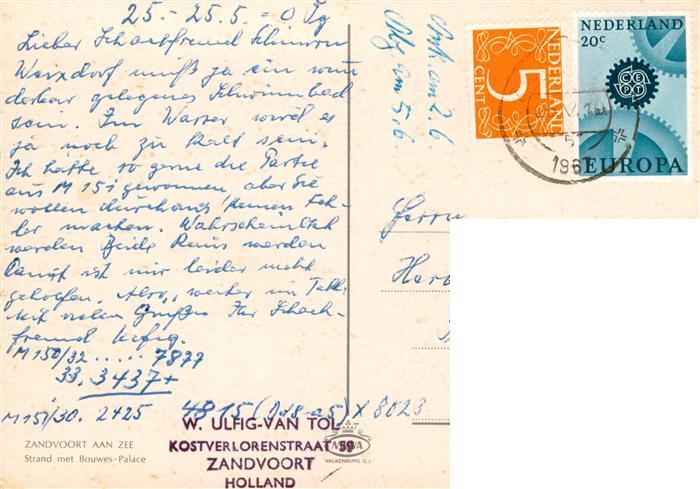 25.- 25.5. = 0 Tg
Lieber Schachfreund Schimon
Weixdorf muß ja ein wun
derbar gelegenes Schwimmbad
sein. Im Wasser wird es
ja noch zu kalt sein.
Ich hatte so gerne die Partie
aus M 151 gewonnen, aber Sie
wollen durchaus keinen Feh-
ler machen. Wahrscheinlich
werden Beide Remis werden
Damit ist mir leider nicht
geholfen. Also, weiter im Takt:
Mit vielen Grüßen Ihr Schach-
freund Ulfig.
M 150/32 ..... 7877
33. 3437+
M 151/30. 2425 4815 (Dd8-a5) X 8023
am 2.6.
am 5.6.
NEDERLAND
5
CENT
NEDERLAND
20c
CEPT
EUROPA
1967
Herrn
Her
W. ULFIG-VAN TOL
KOSTVERLORENSTRAAT 59
ZANDVOORT
HOLLAND
ZANDVOORT AAN ZEE
Strand met Bouwes-Palace
VALKENBURG (L.)